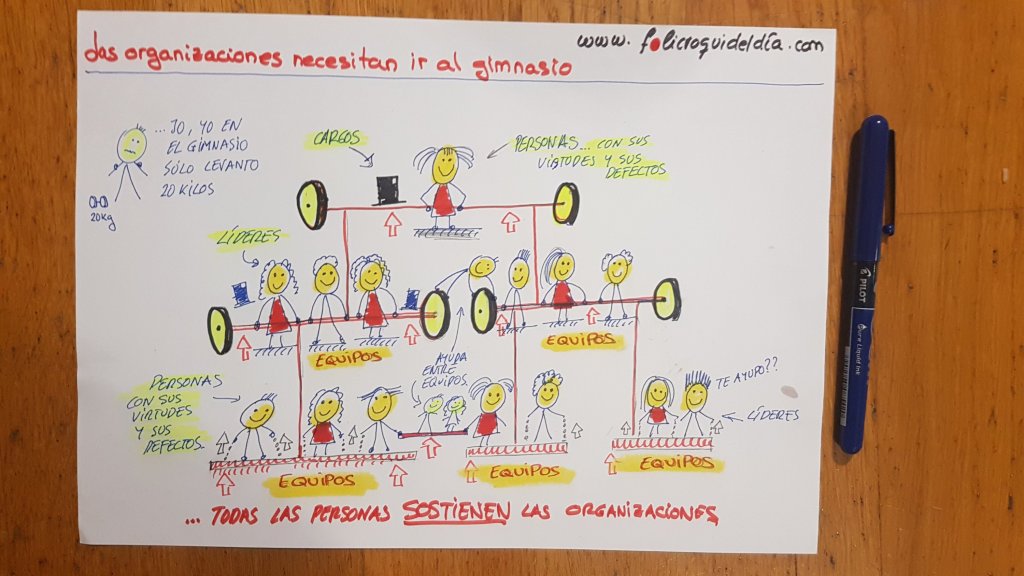 www.folicroquideldía.com
Las organizaciones necesitan ir al gimnasio
... JO, YO EN
EL GIMNASIO
SÓLO LEVANTO
20 KILOS
20Kg
CARGOS
PERSONAS... CON SUS
VIRTUDES Y SUS
DEFECTOS.
LÍDERES
EQUIPOS
EQUIPOS
AYUDA
ENTRE
EQUIPOS.
PERSONAS
CON SUS
VIRTUDES
Y SUS
DEFECTOS.
TE AYUDO??
LÍDERES
EQUIPOS
EQUIPOS
EQUIPOS
... TODAS LAS PERSONAS SOSTIENEN LAS ORGANIZACIONES
PILOT
Pure Liquid Ink